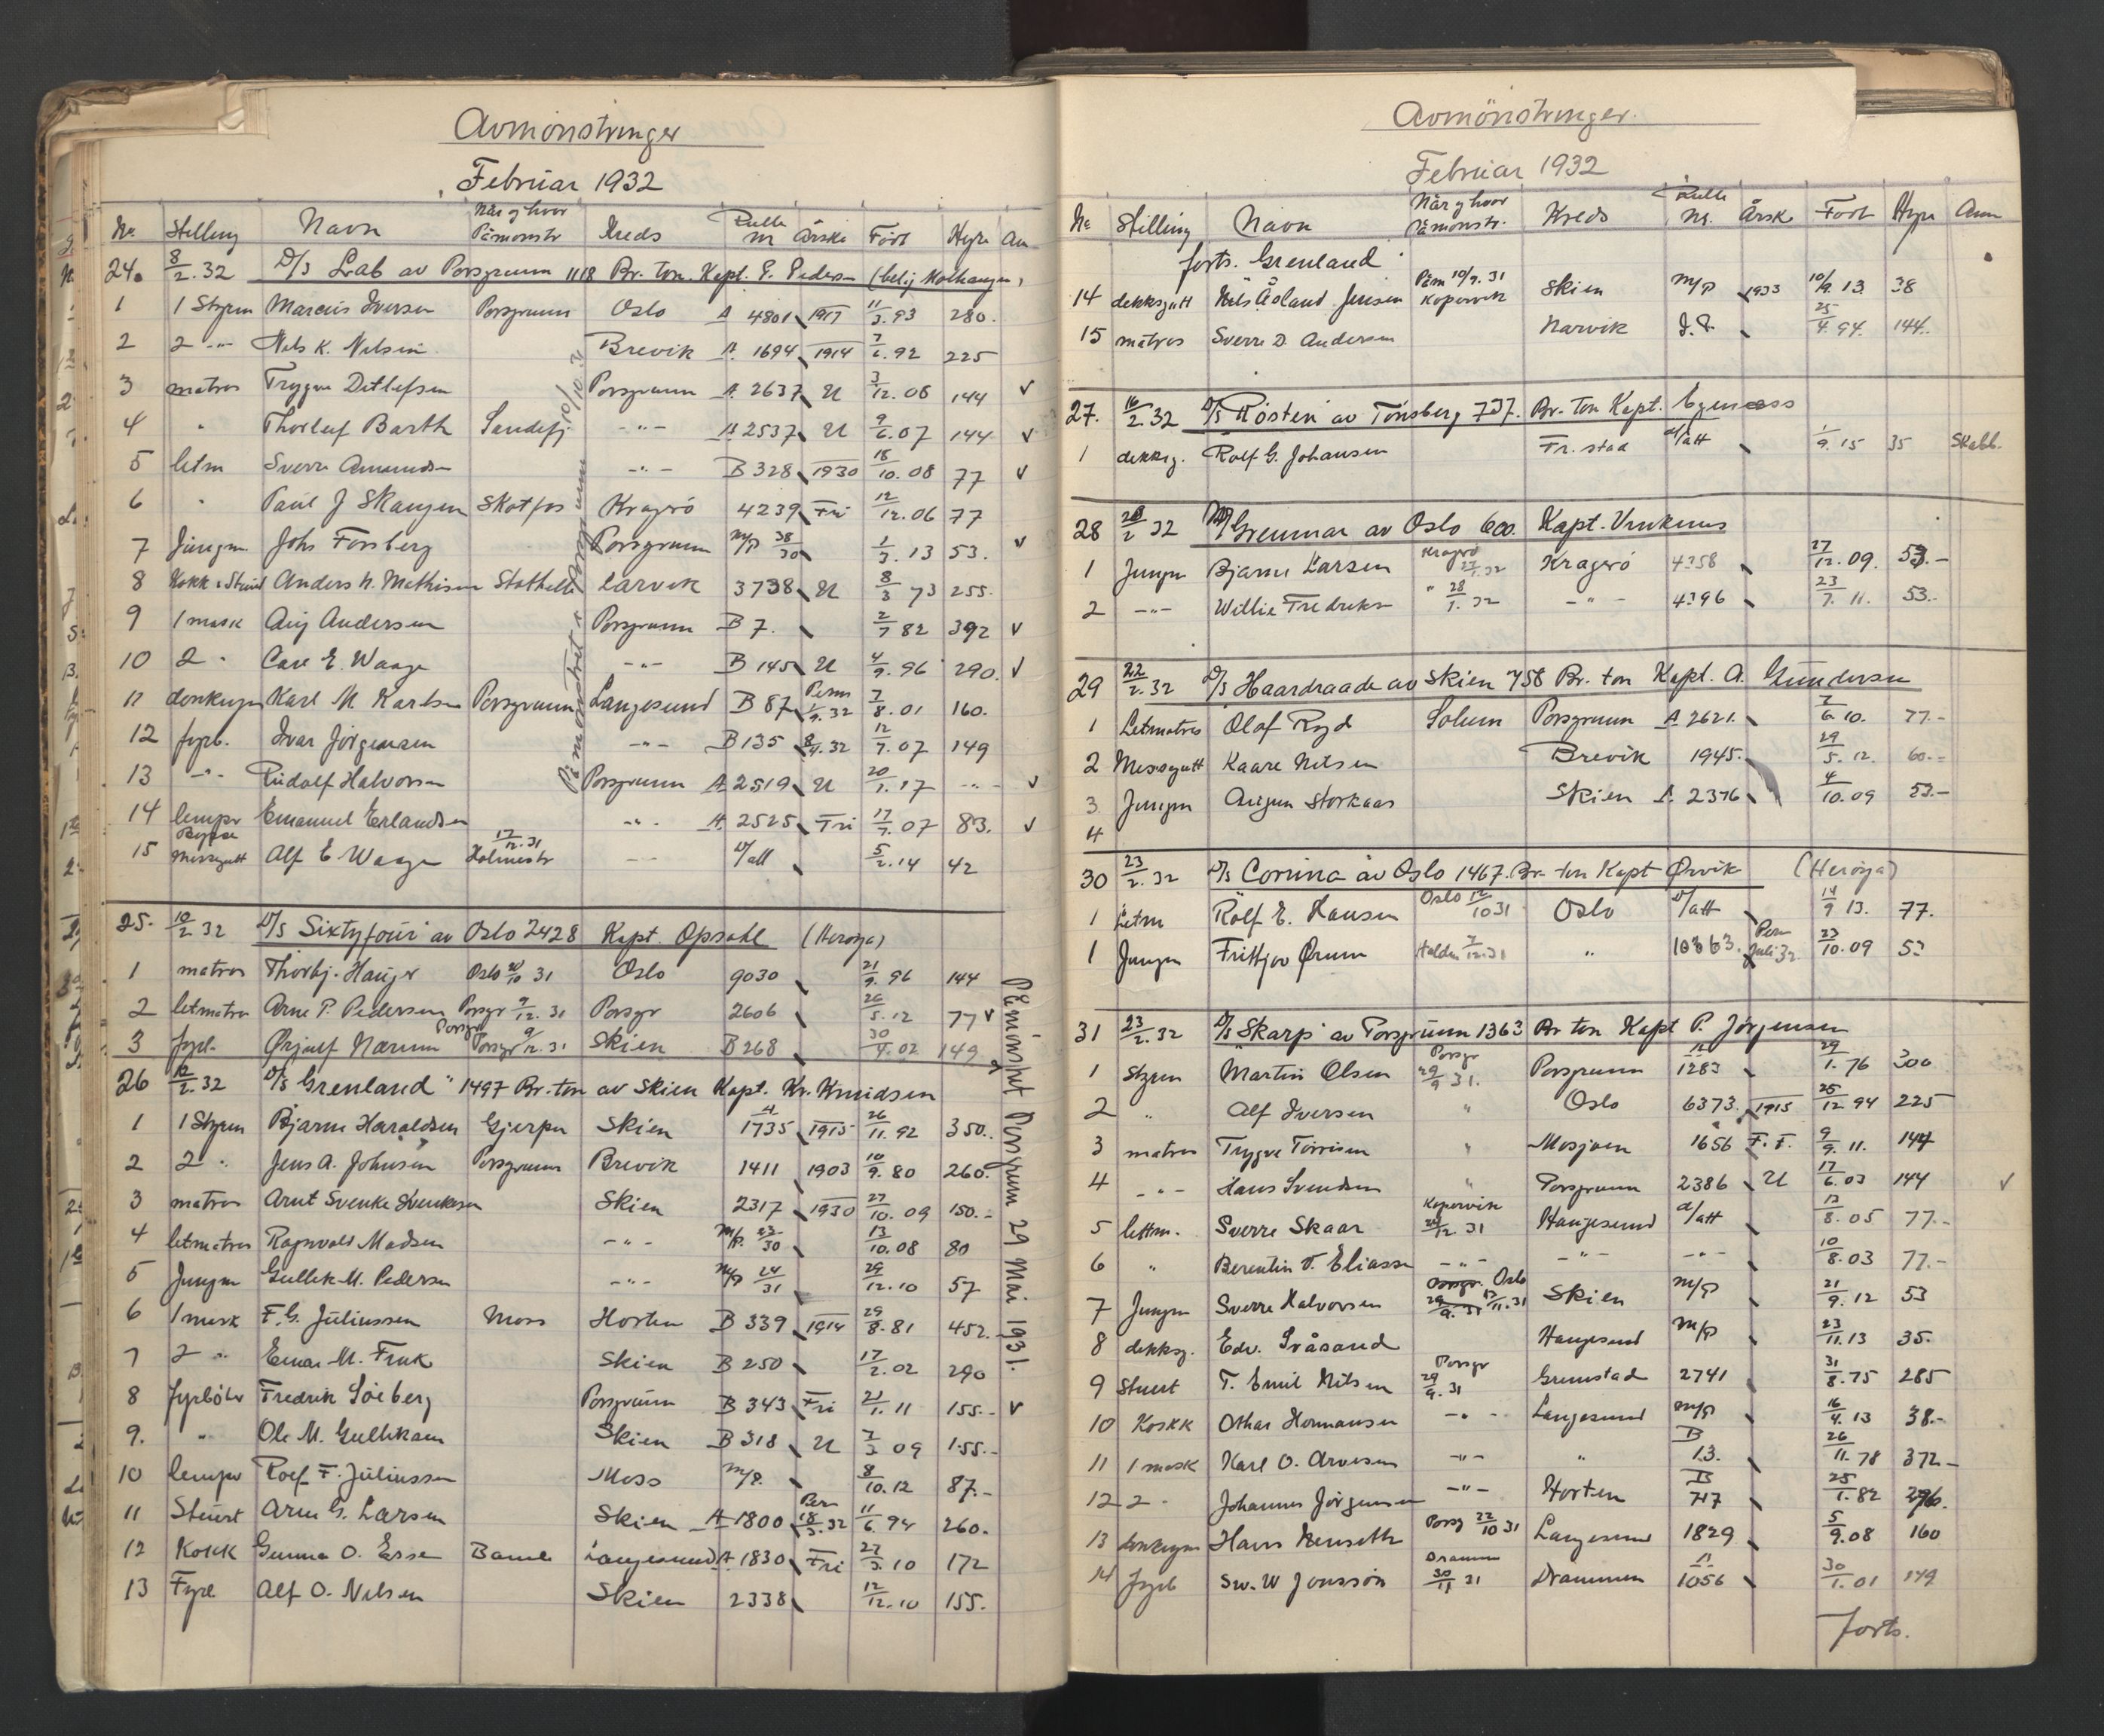 Avmönstringer
Februar 1932
No Stilling Navn Når og hvor Påmonstr Kreds Rulle nr Årskl Född Hyre An
24. 8/2.32 D/S Lab av Porsgrunn 1118 Br. ton. Kapt. P. Pedersen
1 1 Styrm Marcus Iversen Porsgrunn Oslo A 4801 1917 11/3.93 280.
2 2 -"- Nils K. Nilsen Brevik A. 1694 1914 7/6.92 225
3 matros Trygve Ditlefsen Porsgrunn A. 2637 U 3/12.08 144 v
4 " Thorleif Barth Sandefj. -"- A 2537 U 9/6.07 144 v
5 letm Sverre Amundsen -"- B 328 1930 18/10.08 77 v
6 " Paul J Skaugen Skotfos Kragerö 4239 Fri 12/12.06 77
7 Jungm Johs Forsberg Porsgrunn M/P 38/30 1/3.13 53. v
8 Kokk & Stuert Anders N. Mathisen Stathelle Larvik 3738 U 8/3 73 255.
9 1 mask Aug Andersen Porsgrunn B 7. 2/7 82 392 v
10 2 " Carl E. Waage -"- B 145 U 4/9.96 290. v
11 donkeym Karl M Karlsen Porsgrunn Langesund B 87 Perm 1/9.32 7/8.01 160.
12 fyrb. Ivar Jörgensen -"- B 135 8/9.32 12/7.07 149
13 -"- Rudolf Halvorsen Porsgrunn A 2519 U 20/1.17 -"- v
14 lemper Emanuel Erlandsen -"- A. 2525 Fri 17/7.07 83. v
15 Byssa Messegutt Alf E Waage 17/12.31 Holmestr -"- D/att 5/2.14 42
Påmönstret i Porsgrunn 10/10.31
25. 10/2 32 D/S Sixtyfour av Oslo 2428 Kapt. Opsahl (Heröya)
1 matros Thorbj. Hauger Oslo 20/10 31 Oslo 9030 21/9.96 144
2 letmatros Arne P. Pedersen Porsgr 9/12.31 Porsgr 2606 26/5.12 77 v
3 fyrb. Ørjulf Nærum Porsgr Porsgr 9/12.31 Skien B 268 30/4.02 149
26 12/2.32 D/S Grenland" 1497 Br. ton av Skien Kapt. Kr. Knudsen
1 1 Styrm Bjarne Haraldsen Gjerpen Skien A 1735 1915 26/11.92 350.
2 2 " Jens A. Johnsen Porsgrunn Brevik 1411 1903 10/9.80 260.
3 matros Arnt Svenke Svenkesen Skien 2317 1930 27/10.09 150.-
4 letmatros Ragnvald Madsen -"- M/P. 23/30 13/10.08 80
5 Jungm Gullik M. Pedersen -"- M/P 24/31 29/12.10 57
6 1 mask F. G. Juliussen Moss Horten B 339 1914 29/8.81 452.-
7 2 " Einar M. Fruk Skien B 250 17/2.02 290
8 Fyrböter Fredrik Söeberg Porsgrunn B 343 Fri 21/1.11 155.- v
9. " Ole M. Gulliksen Skien B 318 U 7/3 09 155.-
10 lemper Rolf F. Juliussen Moss M/P. 8/10.12 87.-
11 Stuert Arne G. Larsen Skien A 1800 Perm 18/3.32 11/6.94 260.
12 Kokk Gunnar O. Esse Bamle Langesund A 1830 Fri 27/3.10 172
13 Fyrb. Alf O. Nilsen Skien 2338 12/12.10 155.
Påmönstret Porsgrunn 29 Mai 1931.
Avmönstringer.
Februar 1932
No Stilling Navn Når og hvor Påmonstr. Kreds Rulle Nr. Årskl Född Hyre Anm
forts. Grenland
14 dekksgutt Nils Åsland Jensen Påm 10/9.31 Kopervik Skien M/P 1933 10/9.13 38
15 matros Sverre D. Andersen Narvik J.P. 25/4.94 144.
27. 16/2.32 D/S "Rösten" av Tönsberg 737. Br. ton Kapt. Egenæss
1 dekksg. Rolf G. Johansen Fr.stad d/att 1/9.15 35 Skabb.
28 20/2 32 M/S Grennar av Oslo 600. Kapt.
1 Jungm Bjarne Larsen Kragerö 27/1.32 Kragerö 4358 27/12.09. 53.-
2 -"- Willie Fredriksen " 28/1.32 -"- 4396 23/7.11. 53.-
29 22/2.32 D/S Haardraade av Skien 758 Br. ton Kapt. A. Gundersen
1 Letmatros Olaf Ryd Solum Porsgrunn A 2621. 7/6.10. 77.-
2 Messegutt Kaare Nilsen Brevik 1945. 29/5.12. 60.-
3 Jungm Aagim Storkaas Skien A. 2376 4/10.09 53.-
4
30 23/2.32 D/S Corrina av Oslo 1467. Br. ton Kapt Ørvik (Heröya)
1 Letm Rolf E. Hansen Oslo 12/10 31 Oslo D/att 14/9 13. 77.
1 Jungm Frittjov Ørum Halden 7/12.31 " 10863. Perm Juli 32 23/10.09 53
31 23/2.32 D/S "Skarp" av Porsgrunn 1363 Br ton Kapt P. Jörgensen
1 Styrm Martin Olsen Porsgr 29/9 31. Porsgrunn A 1283 29/1.76 300
2 " Alf Iversen " Oslo 6373. 1915 25/12 94 225
3 matros Trygve Torrisen " Mosjøen 1656 F.F. 9/9.11. 144
4 -"- Hans Svendsen " Porsgrunn 2386 U 17/6.03 144 v
5 lettm. Sverre Skaar Kopervik 20/12 31 Haugesund d/att 13/8.05 77.-
6 " Berentin T. Eliassen -"- -"- -"- 10/8.03 77.-
7 Jungm Sverre Halvorsen Porsgr. 29/9.31 Oslo 13/11.31 Skien M/P 21/9.12 53
8 dekksg. Edv. Gråsand Haugesund M/P 23/11.13 35.
9 Stuert T. Emil Nilsen Porsgr 29/9.31 Grimstad 2741 31/8.75 285
10 Koskk Othar Hermansen -"- Langesund M/P 16/4.13 38.-
11 1 mask Karl O. Arvesen -"- " B 13. 26/11.78 372.-
12 2 " Johannes Jörgensen -"- Horten B 717 25/1.82 296.
13 donkeym Hans Renseth Porsg 22/10 31 Langesund 1829 5/9.08 160
14 fyrb Sw. W Jonsson Dramm 30/11 31 Drammen A 1056 30/1.01 149
forts.